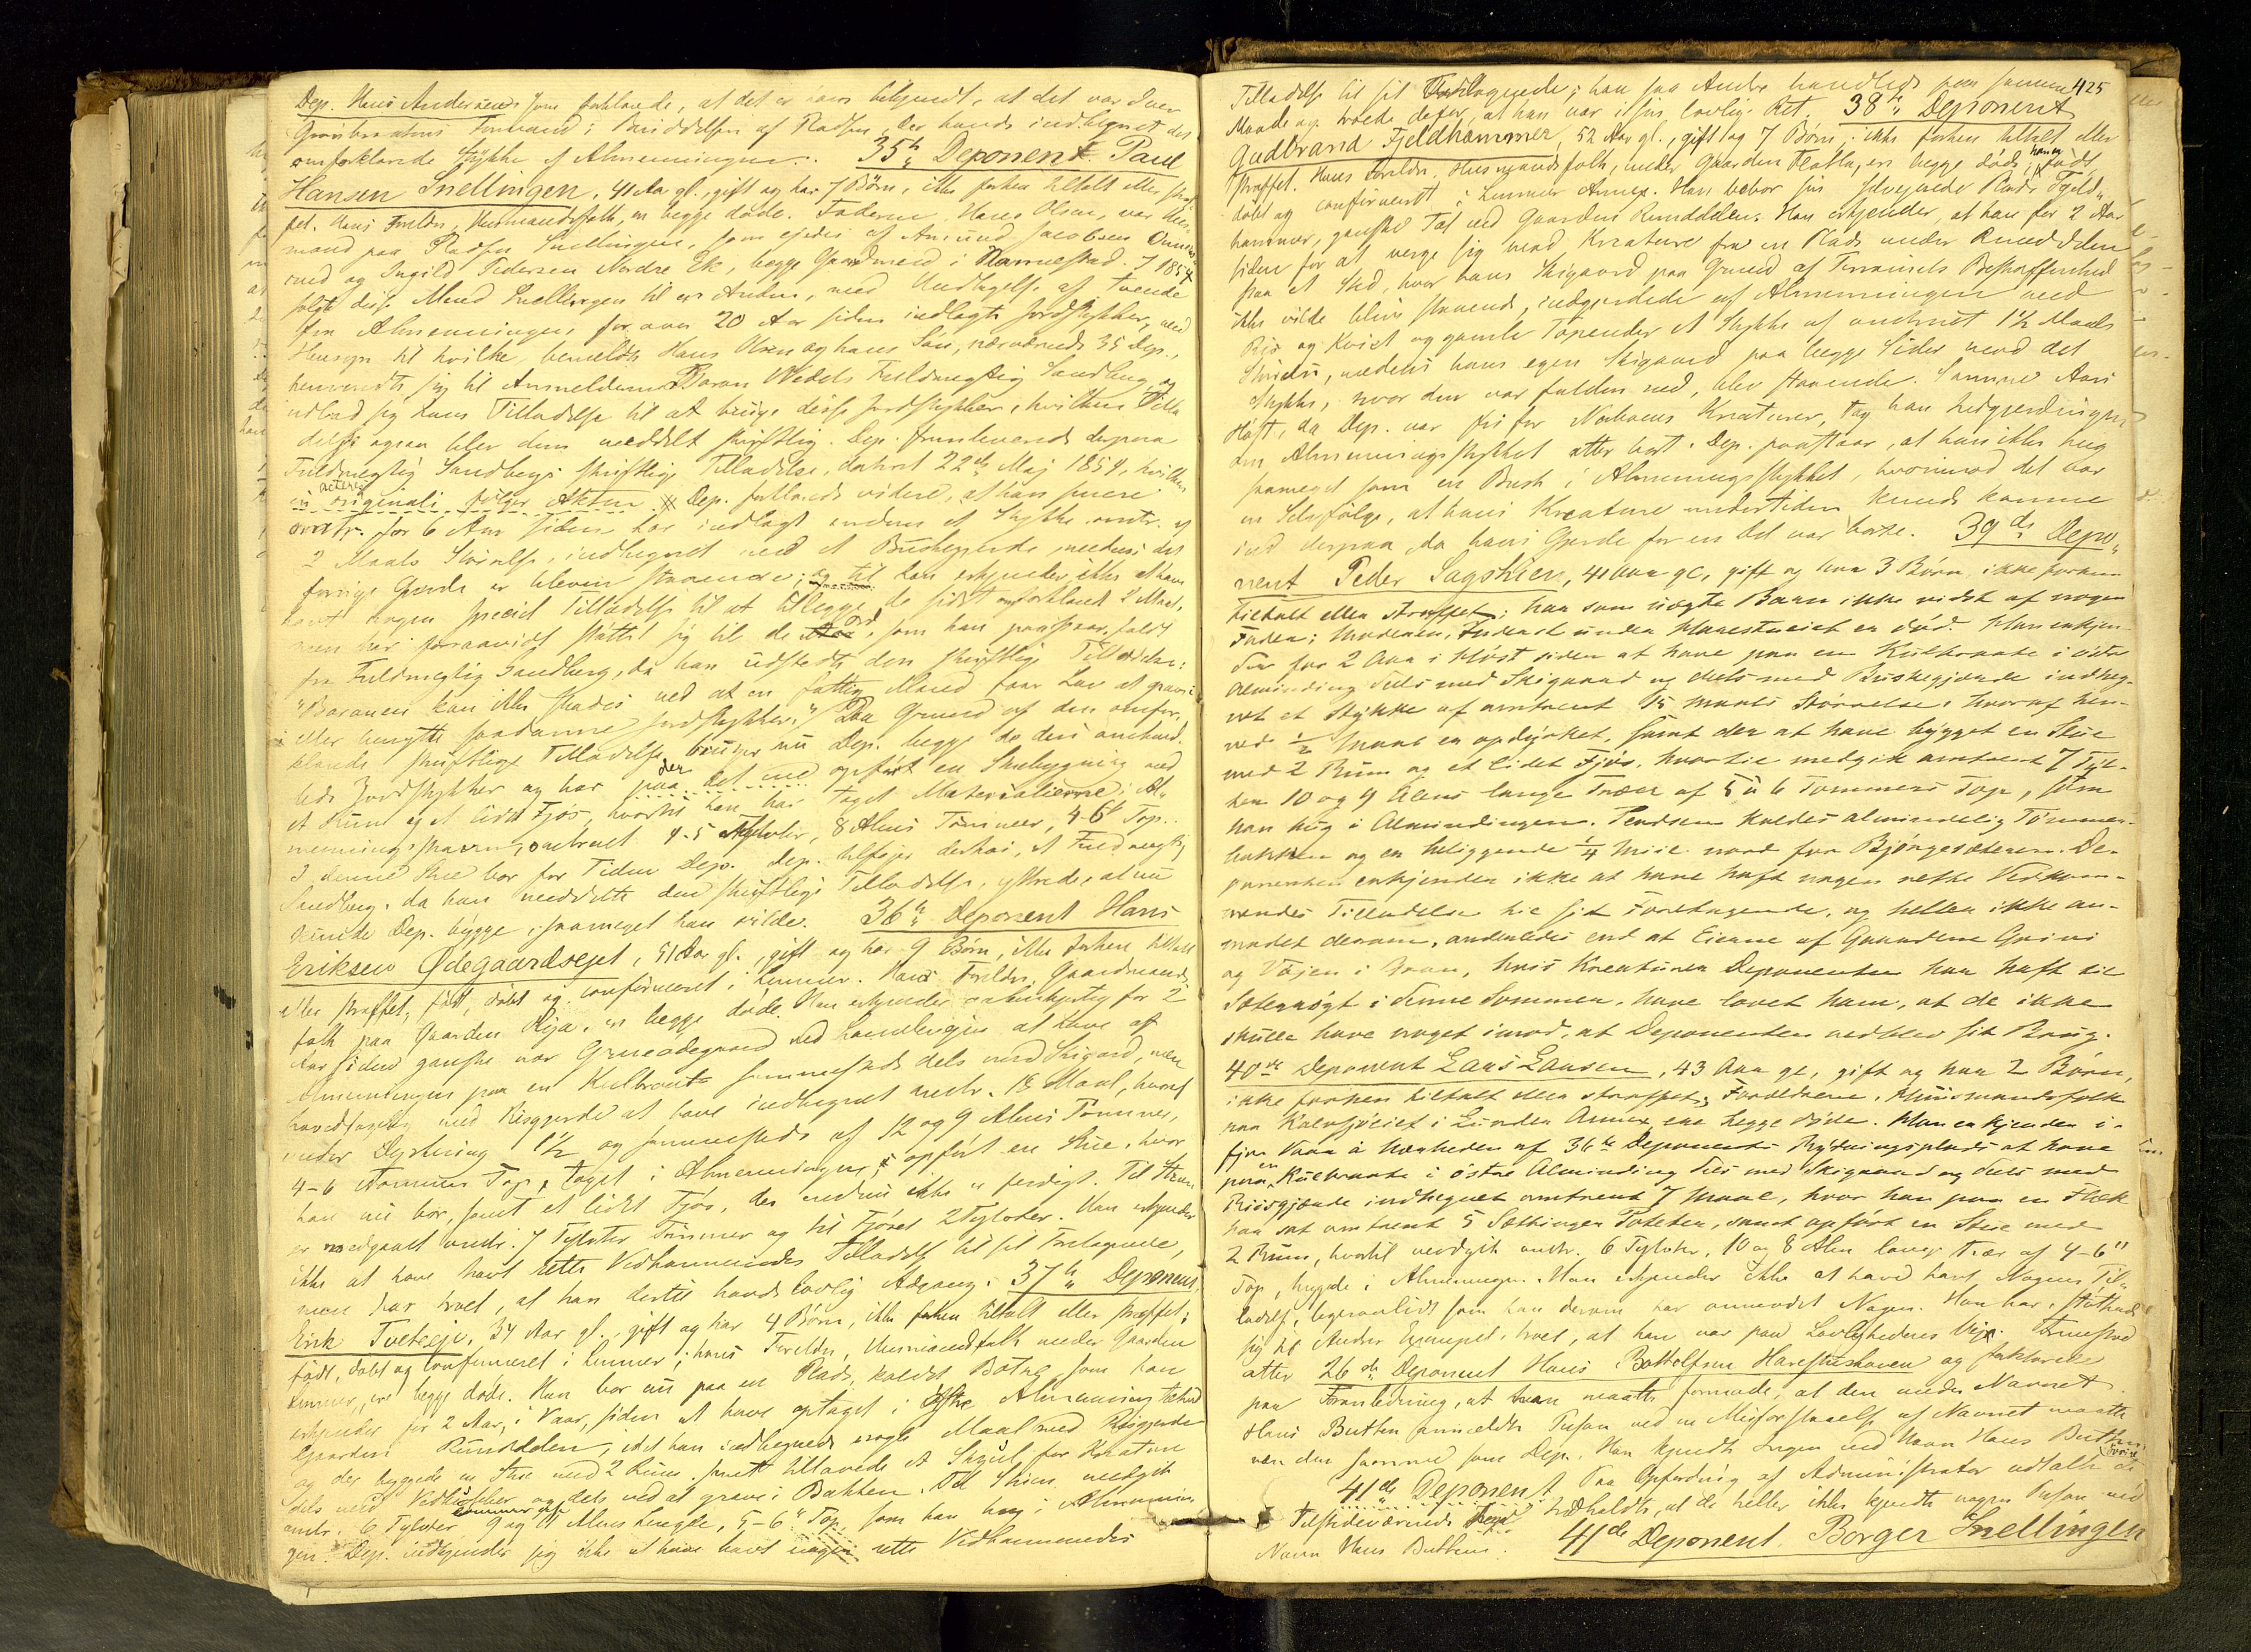 Dep. Hans Andersen som forklarede, at det er ham bekjendt, at det var Iver
Formand i Besiddelsen af Pladsen, der havde indhegnet det
omforklarede Stykke af Almenningen. 35te Deponent Paul
Hansen Snellingen, 41 Aar gl., gift og har 7 Børn, ikke forhen tiltalt eller straf-
fet. Hans Foreldre, Husmandsfolk, er begge døde. Faderen Hans Olsen, var Huus-
mand paa Pladsen Snellingen, som ejedes af Amund Jacobsen
rud og Ingild Pedersen Nordre Ek, begge Gaardmænd i Ramnestad. I 1854
solgte disse Mænd Snellingen til en Anden, med Undtagelse af tvende
fra Almenningen for over 20 Aar siden indlagte Jordstykker, med
Hensyn til hvilke bemeldte Hans Olsen og hans Søn, nærværende 35 Dep.,
henvendte sig til Anmelderen Baron Wedels Fuldmægtig Sandberg og
udbad sig hans Tilladelse til at bruge disse Jordstykker, hvilken Tilla
delse ogsaa blev dem meddelt skriftlig. Dep. fremleverede derpaa
Fuldmægtig Sandbergs skriftlige Tilladelse, dateret 22de Maj 1854, hvilken
in originali følger Akten. Dep. forklarede videre, at han senere
omtr. for 6 Aar siden har indlagt endnu et Stykke omtr. af
2 Maals Størrelse, indhegnet med et Buskegjerde, medens det
forrige Gjerde er bleven staaende; og til han erkjender ikke at have
havt nogen speciel Tilladelse til at tillegge de sidst omforklarede 2 Maal,
men har forsaavidt støttet sig til de Ord, som han paastaar, faldt
fra Fuldmægtig Sandberg, da han udstedte den skriftlige Tilladelse:
"Baronen kan ikke skades ved at en fattig Mand faar Lov at
eller benytte saadanne Jordstykker." Paa Grund af den omfor-
klarede skriftlige Tilladelse bruger nu Dep. begge de den omhand-
lede Jordstykker og har paa det ene opført en Stuebygning med
et Rum og et lidet Fjøs, hvortil han har taget Materialierne i Al-
menningsskoven, omtrent 4-5 Tylvter, 8 Alens Tømmer, 4-6" Top.
I denne Stue bor for Tiden Dep. Dep. tilføjer derhos, at Fuldmægtig
Sandberg, da han meddelte den skriftlige Tilladelse, yttrede, at nu
kunde Dep. bygge, saameget han vilde. 36te Deponent Hans
Eriksen Ødegaardsejet, 51 Aar gl., gift og har 9 Børn, ikke forhen tiltalt
eller straffet, født, døbt og confirmeret i Lunner. Hans Foreldre, Gaardmands-
folk paa Gaarden Øija, er begge døde. Han erkjender for 2
Aar siden ganske nær Grinaødegaard ved at have af
Almenningen paa en Kulbraate sammesteds dels med Skigard, men
hovedsagelig med Risgjerde at have indhegnet omtr. 18 Maal, hvoraf
under Dyrkning 1½ og sammesteds af 12 og 9 Alens Tømmer,
4-6 Tommers Top, taget i Almenningen, opført en Stue, hvor
han nu bor, samt et lidet Fjøs, der endnu ikke er færdigt. Til Stuen
er medgaaet omtr. 7 Tylvter Tømmer og til Fjøset 2 Tylvter. Han erkjender
ikke at have havt rette Vedkommendes Tilladelse til sit Foretagende,
men har troet, at han dertil havde lovlig Adgang. 37te Deponent,
Erik Tveteeje, 34 Aar gl., gift og har 4 Børn, ikke forhen tiltalt eller straffet;
født, døbt og confirmeret i Lunner; hans Foreldre, Husmandsfolk under Gaarden
ere begge døde. Han bor nu paa en Plads, kaldet Botne som han
erkjender for 2 Aar, i Vaar, siden at have optaget i Østre Almenning
Gaarden Rundelen, idet han indhegnede nogle Maal med Risgjerde
og der byggede en Stue med 2 Rum samt tillavede et Skjul for Kreature
dels med og dels ved at grave i Bakken. Til Stuen medgik
omtr. 6 Tylvter Tømmer af 9 og 11 Alens Længde, 5-6" Top, som han hug i Almennin
gen. Dep. erkjender sig ikke at have havt nogen rette Vedkommendes
425
Tilladelse til sit Foretagende; han saa Andre handlede paa samme
Maade og troede derfor, at han var i sin lovlige Ret. 38te Deponent
Gudbrand Fjeldhammer, 52 Aar gl., gift og 7 Børn, ikke forhen tiltalt eller
straffet. Hans Foreldre, Husmandsfolk, under Gaarden Flatla, er begge døde; han er født,
døbt og confirmeret i Lunner Annex. Han bebor sin Selvejende Plads Fjeld-
hammer, ganske tæt ved Gaarden Rundelen. Han erkjender, at han for 2 Aar
siden for at verge sig mod Kreature fra en Plads under Rundelen
paa et Sted, hvor hans Skigaard paa Grund af Terrainets Beskaffenhed
ikke vilde blive staaende, indgjerdede af Almenningen med
Ris og Kvist og gamle Topender et Stykke af omtrent 1½ Maals
Vidde, medens hans egen Skigaard paa begge Sider mod det
Stykke, hvor den var falden ned, blev staaende. Samme Aars
Høst, da Dep. var fri for Naboens Kreaturer, tog han Indgjerdningen
om Almenningsstykket atter bort. Dep. paastaar, at han ikke hug
saameget som en Busk i Almenningsstykket, hvorimod det var
en Selvfølge, at hans Kreature undertiden kunde komme
ind derpaa, da hans Gjerde for en Del var borte. 39de Depo-
nent Peder Sagskien, 41 Aar gl, gift og har 3 Børn ikke forhen
tiltalt eller straffet; har som uægte Barn ikke vidst af nogen
Fader; Moderen, Inderst under Harestueiet er død. Han erkjen-
der for 2 Aar i Høst siden at have paa en Kulbraate i østre
Alminding dels med Skigaard og dels med Buskegjærde indheg-
net et Stykke af omtrent 15 Maals Størrelse, hvoraf hen-
ved ½ Maal er opdyrket, samt der at have bygget en Stue
med 2 Rum og et lidet Fjøs, hvortil medgik omtrent 7 Tyl-
ter 10 og 9 Alens lange Træer af 5 à 6 Tommers Top, som
han hug i Almindingen. Pladsen kaldes almindelig Tømmer-
bakken og er beliggende ¼ Miil nord for Bjørgesæteren. De-
ponenten erkjender ikke at have haft nogen rette Vedkom-
mendes Tilladelse til sit Foretagende, og heller ikke an-
modet derom, anderledes end at Eierne af Gaardene Grini
og Vøjen i Gran, hvis Kreaturer Deponenten har haft til
Sæterrøgt i denne Sommer, have lovet ham, at de ikke
skulle have noget imod, at Deponenten vedblev sit Brug.
40de Deponent Lars Larsen, 43 Aar gl, gift og har 2 Børn,
ikke forhen tiltalt eller straffet; Forældrene, Huusmandsfolk
paa Kalvsjøeiet i Lunder Annex, ere begge døde. Han erkjender i-
fjor Vaar i Nærheden af 36te Deponents Rydningsplads at have
paa en Kulbraate i østre Alminding dels med Skigaard og dels med
Riisgjærde indhegnet omtrent 7 Maal, hvor han paa en Flek
har sat omtrent 5 Sættinger Poteter, samt opført en Stue med
2 Rum, hvortil medgik omtr. 6 Tylvter, 10 og 8 Alen lange Trær af 4-6"
Top, hugne i Almenningen. Han erkjender ikke at have havt Nogens Til-
ladelse, ligesaalidt som han derom har anmodet Nogen. Han har, støttende
sig til Andres Exempel, troet, at han var paa Lovlighedens Vej. Fremstod
atter 26de Deponent Hans Bottolfsen Harestuehaven og forklarede
paa Foranledning, at han maatte formode, at den under Navnet
Hans Butten anmeldte Person ved en Misforstaaelse af Navnet maatte
være den samme som Dep. Han kjendte Ingen ved Navn Hans Butten.
41de Deponent Paa Opfordring af Administrator udtalte de øvrige
Tilstedeværende at de heller ikke kjendte nogen Person ved
Navn Hans Butten. 41de Deponent, Borger Snellingen